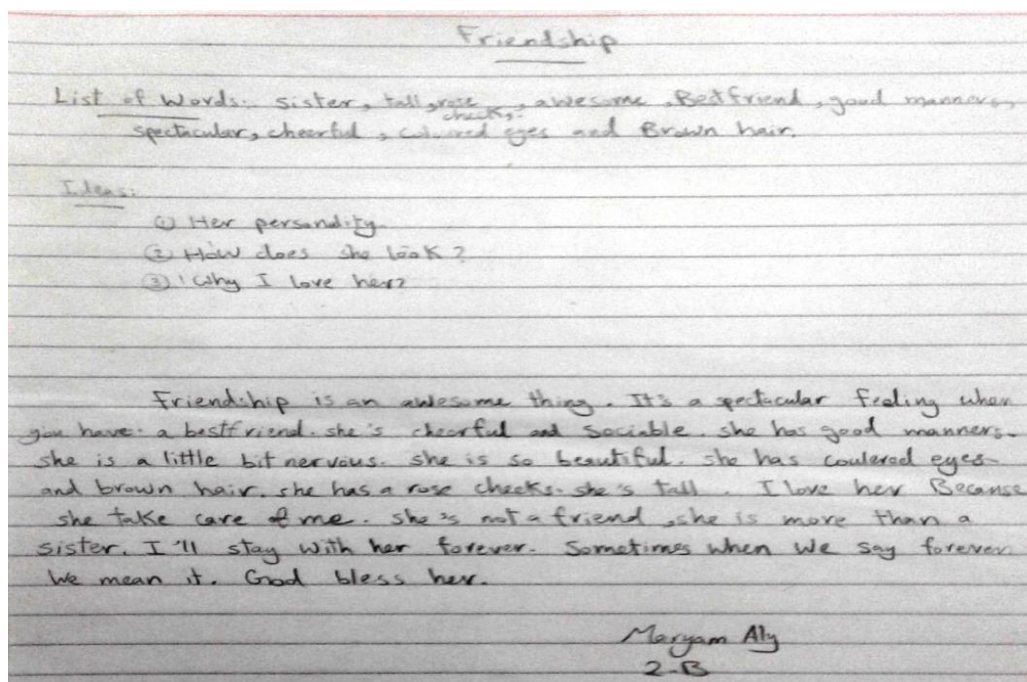 Friendship
List of Words: Sister, tall, rose cheeks, awesome, Bestfriend, good manners,
spectacular, cheerful, coloured eyes and Brown hair.
Ideas:
① Her personality
② How does she look?
③ Why I love her?
Friendship is an awesome thing. It's a spectacular feeling when
you have a bestfriend. she's cheerful and sociable. she has good manners.
she is a little bit nervous. she is so beautiful. she has coulered eyes
and brown hair. she has a rose cheeks. she's tall. I love her Because
she take care of me. she's not a friend, she is more than a
sister. I'll stay with her forever. Sometimes when we say forever
We mean it. God bless her.
Maryam Aly
2-B